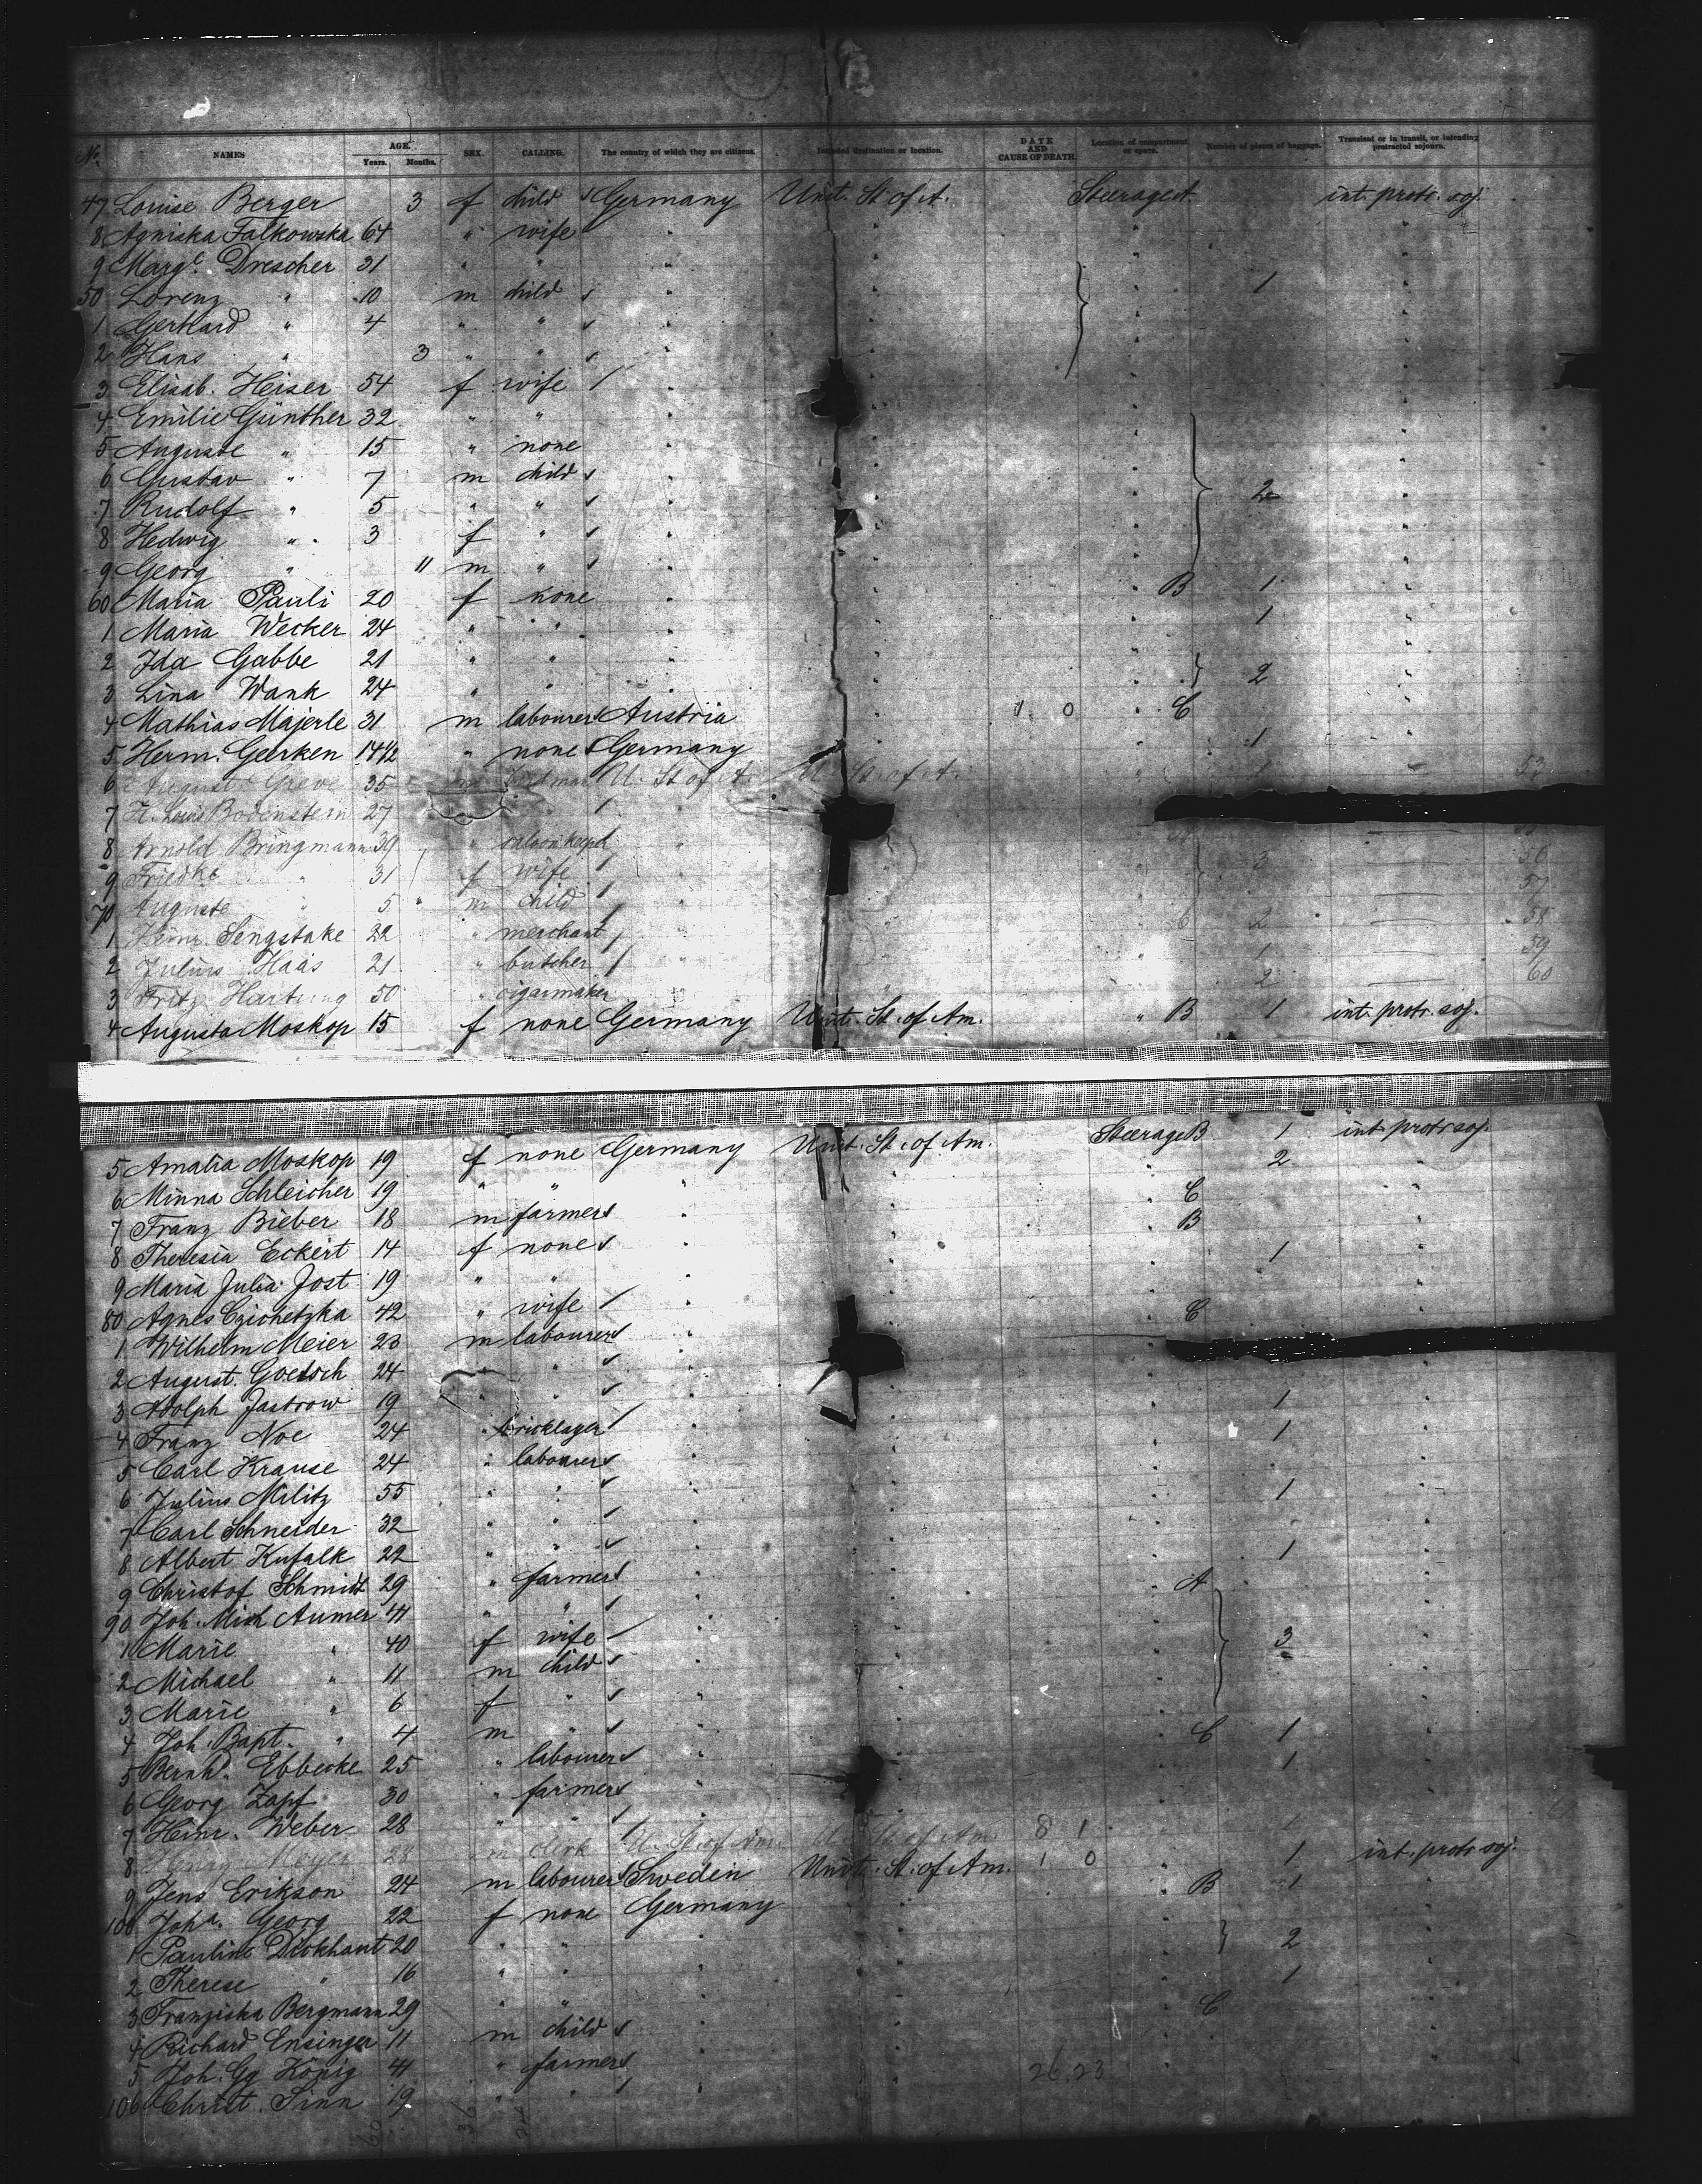 No. NAMES AGE. Years. Months. SEX. CALLING. The country of which they are citizens. Intended destination or location. DATE AND CAUSE OF DEATH. Location of compartment or space. Number of pieces of baggage. Transient or in transit, or intending protracted sojourn.
47 Louise Berger 3 f child Germany Unit. St. of A. Steerage A int. protr. soj.
8 Agniska Falkowska 64 " wife " " " "
9 Marg. Drescher 31 " " " " " "
50 Lorenz " 10 m child " " " 1 "
1 Gerhard " 4 " " " " " "
2 Hans " 3 " " " " " "
3 Elisab. Heiser 54 f wife " " " "
4 Emilie Günther 32 " " " " " "
5 Auguste " 15 " none " " " "
6 Gustav " 7 m child " " " 2 "
7 Rudolf " 5 " " " " " "
8 Hedwig " 3 f " " " " "
9 Georg " 11 m " " " " "
60 Maria Pauli 20 f none " " " B 1 "
1 Maria Wecker 24 " " " " " 1 "
2 Ida Gabbe 21 " " " " " "
3 Lina Wank 24 " " " " " 2 "
4 Mathias Majerle 31 m labourer Austria " 1 0 " C "
5 Herm. Geerken 14 1/2 " none Germany " " 1 "
6 August Greve 35 m U. St. of A. U. St. of A. " 1 53
7 H. Louis Bodenstein 27
8 Arnold Bringmann 39 " saloonkeeper "
9 Friedke " 31 f wife " 3 56
70 Auguste " 5 m child " 57
1 Heinr. Sengstake 22 " merchant " C 2 58
2 Julius Haas 21 " butcher " 1 59
3 Fritz Hartung 50 " cigarmaker 2 60
4 Augusta Moskop 15 f none Germany Unit. St. of Am. " B 1 int. protr. soj.
5 Amalia Moskop 19 f none Germany Unit. St. of Am. Steerage B 1 int. protr. soj.
6 Minna Schleicher 19 " " " " " 2 "
7 Franz Bieber 18 m farmer " " " C "
8 Theresia Eckert 14 f none " " " B "
9 Maria Julia Jost 19 " " " " " 1 "
80 Agnes Czichetzka 42 " wife " " " "
1 Wilhelm Meier 23 m labourer " " " C "
2 August Goetsch 24 " " " " "
3 Adolph Jastrow 19 " " " " " 1 "
4 Franz Noe 24 " bricklayer " " " 1 "
5 Carl Krause 24 " labourer " " " "
6 Julius Militz 55 " " " " " 1 "
7 Carl Schneider 32 " " " " " "
8 Albert Kufalk 22 " " " " " 1 "
9 Christof Schmidt 29 " farmer " " " A "
90 Joh. Mich Aumer 41 " " " " " "
1 Marie " 40 f wife " " " 3 "
2 Michael " 11 m child " " " "
3 Marie " 6 f " " " " "
4 Joh. Bapt. " 4 m " " " " C 1 "
5 Bernh. Ebbecke 25 " labourer " " " 1 "
6 Georg Zapf 30 " farmer " " " "
7 Heinr. Weber 28 " " " " " "
8 Henry Meyer 28 m clerk U. St. of Am. U. St. of Am. 8 1 1
9 Jens Erikson 24 m labourer Sweden Unit. St. of Am. 1 0 " 1 int. protr. soj.
100 Joha. Georg 22 f none Germany " " B 1 "
1 Pauline Dickhaut 20 " " " " " "
2 Therese " 16 " " " " " 2 "
3 Franziska Bergmann 29 " " " " " 1 "
4 Richard Ensinger 11 m child " " " C "
5 Joh. Gg König 41 " farmer " " "
106 Christ. Sinn 19 " " " " 26.23 " "